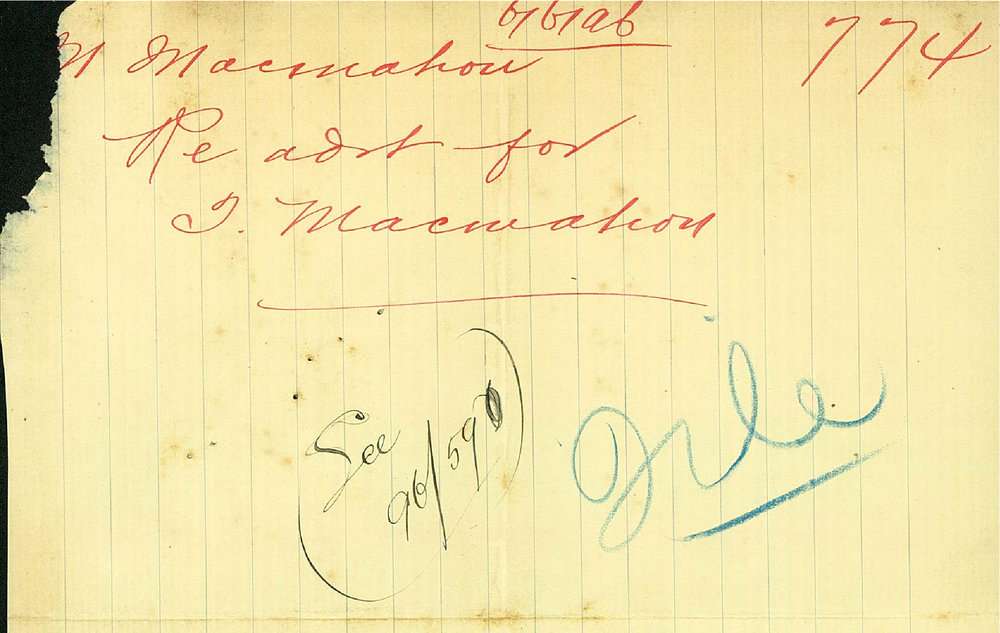 6/6/96
774
M Macmahon
Re advt for
T. Macmahon
See
96/590
File